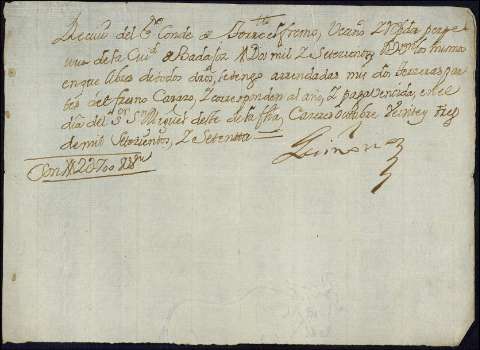 Recivi del Sr Conde de Torre el fresno, Vezino y Rexidor perpe
tuo de la Ciud de Badajoz Dos mil y Setezientos Rs Von los mismos
en que libres de todo daño, le tengo arrendadas mis dos terzeras par
tes del fresno Carazo, y corresponden al año, y paga vencida, en el
dia del Sr Sn Miguel de este de la fha, Cazeres octubre Veinte y tres
de mil Setezientos, y Setenta
Son 2700 Rs Vn